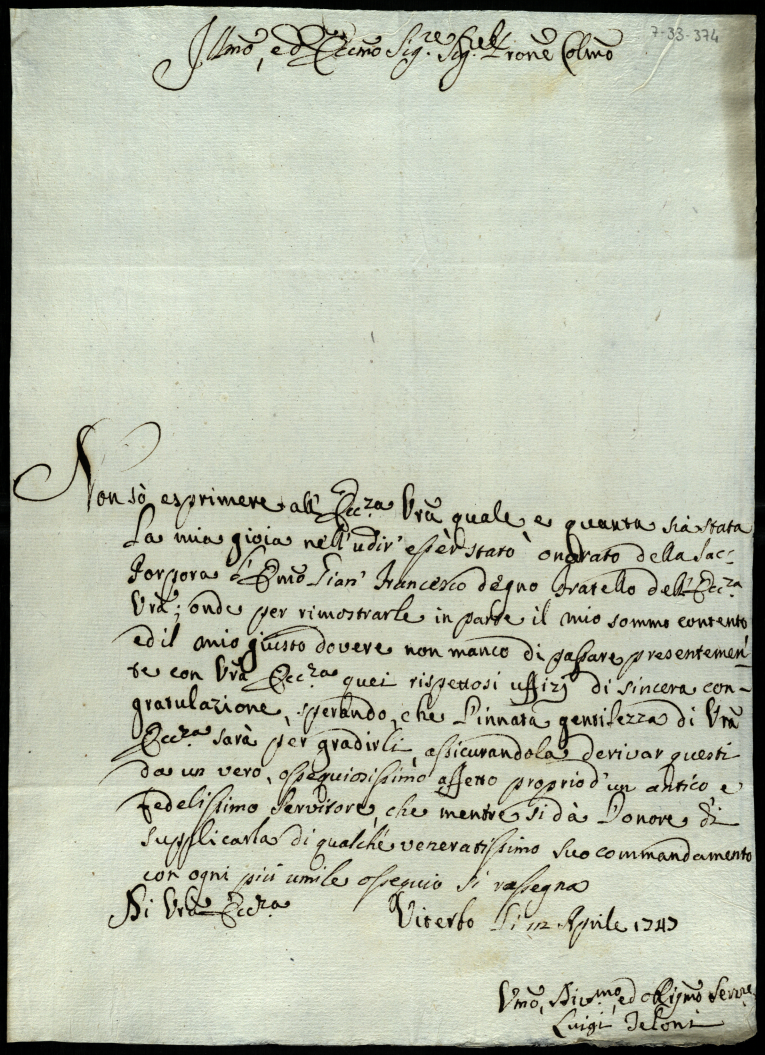 7-33-374
Illmō, ed Eccmō Sig.re Sig.re Prōne Colmō
Non sò esprimere all'Ecc.za Vrā quale e quanta sia stata
la mia gioia nell'udir' essèr stato onorato della Sac:
Porpora l'Emō Gian' Francesco degno Fratello dell'Ecc.za
Vrā; onde per rimostrarle in parte il mio sommo contento
ed il mio giusto dovere non manco di passare presentemen-
te con Vrā Ecc.za quei rispettosi uffizj di sincera con-
gratulazione, sperando, che l'innata gentilezza di Vrā
Ecc.za sarà per gradirli, assicurandola derivar questi
da un vero, ossequiosissimo affetto proprio d'un antico e
fedelissimo servitore, che mentre si dà l'onore di
supplicarla di qualche veneratissimo suo commandamento
con ogni più umile ossequio si rassegna
Di Vrā Ecc.za Viterbo li 12 Aprile 1747
Vmō, Div.mo, ed obligmō Serv.re
Luigi